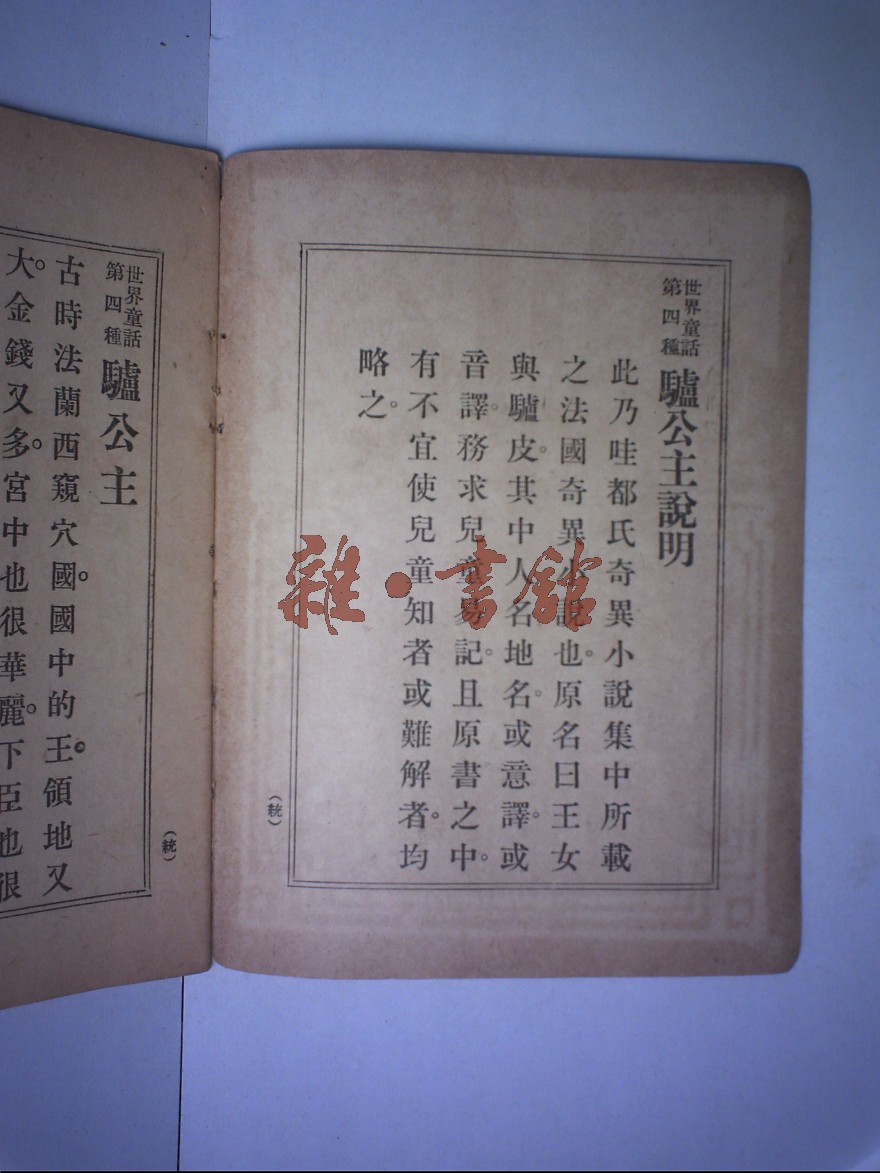 世界童話
第四種
驢公主說明
此乃哇都氏奇異小說集中所載
之法國奇異小說也。原名曰王女
與驢皮。其中人名地名。或意譯。或
音譯。務求兒童易記。且原書之中。
有不宜使兒童知者或難解者。均
略之。
世界童話
第四種
驢公主
古時法蘭西窺穴國。國中的王。領地又
大。金錢又多。宮中也很華麗。下臣也很
雜·書館